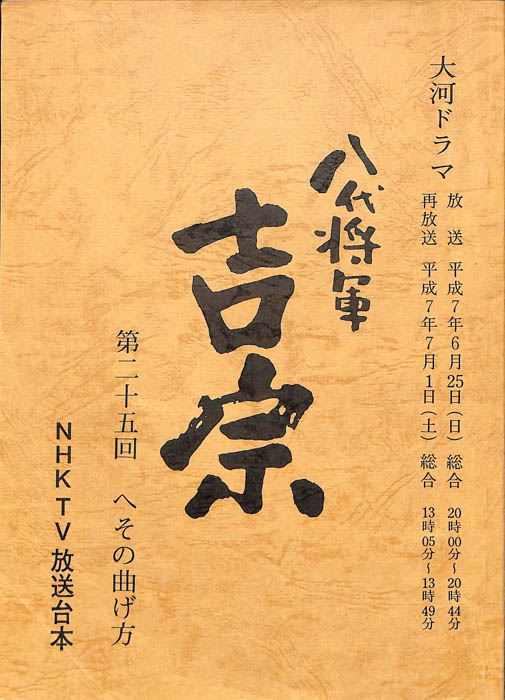 大河ドラマ
放送 平成7年6月25日(日) 総合 20時00分~20時44分
再放送 平成7年7月1日(土) 総合 13時05分~13時49分
八代将軍
吉宗
第二十五回 へその曲げ方
NHK TV 放送台本